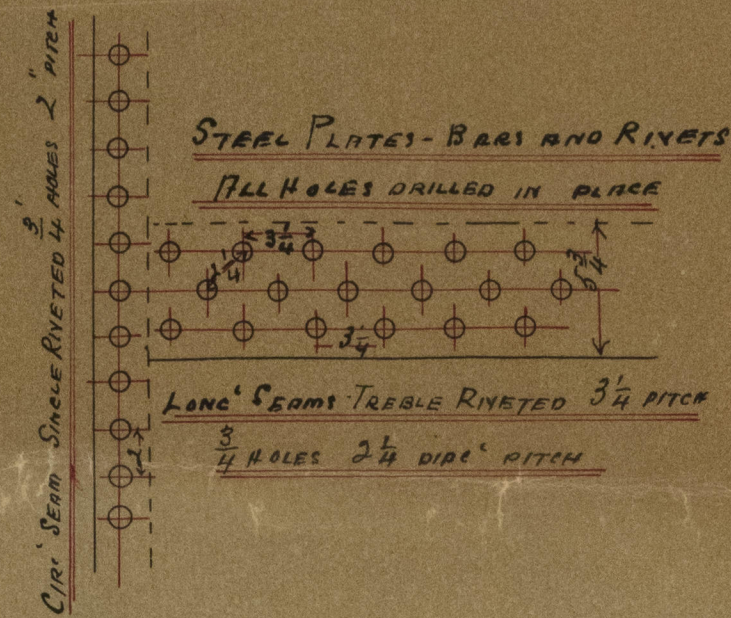 CIRC' SEAM SINGLE RIVETED 3/4' HOLES 2" PITCH
STEEL PLATES - BARS AND RIVETS
ALL HOLES DRILLED IN PLACE
3 1/4
2 1/4
5 3/4
3 1/4
LONG' SEAMS TREBLE RIVETED 3 1/4 PITCH
3/4 HOLES 2 1/4 DIAG' PITCH
2